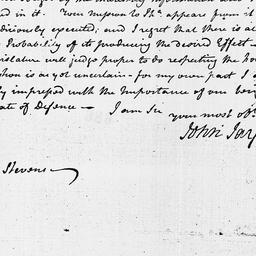 ed in it. Your mission to Pha. appears from it
diciously executed, and I regret that there is al
Probability of its producing the desired Effect —
islature will judge proper to do respecting the
is as yet uncertain — for my own part I
ly impressed with the Importance of our being
ate of Defence — I am Sir
your most obt
John Jay
Stevens